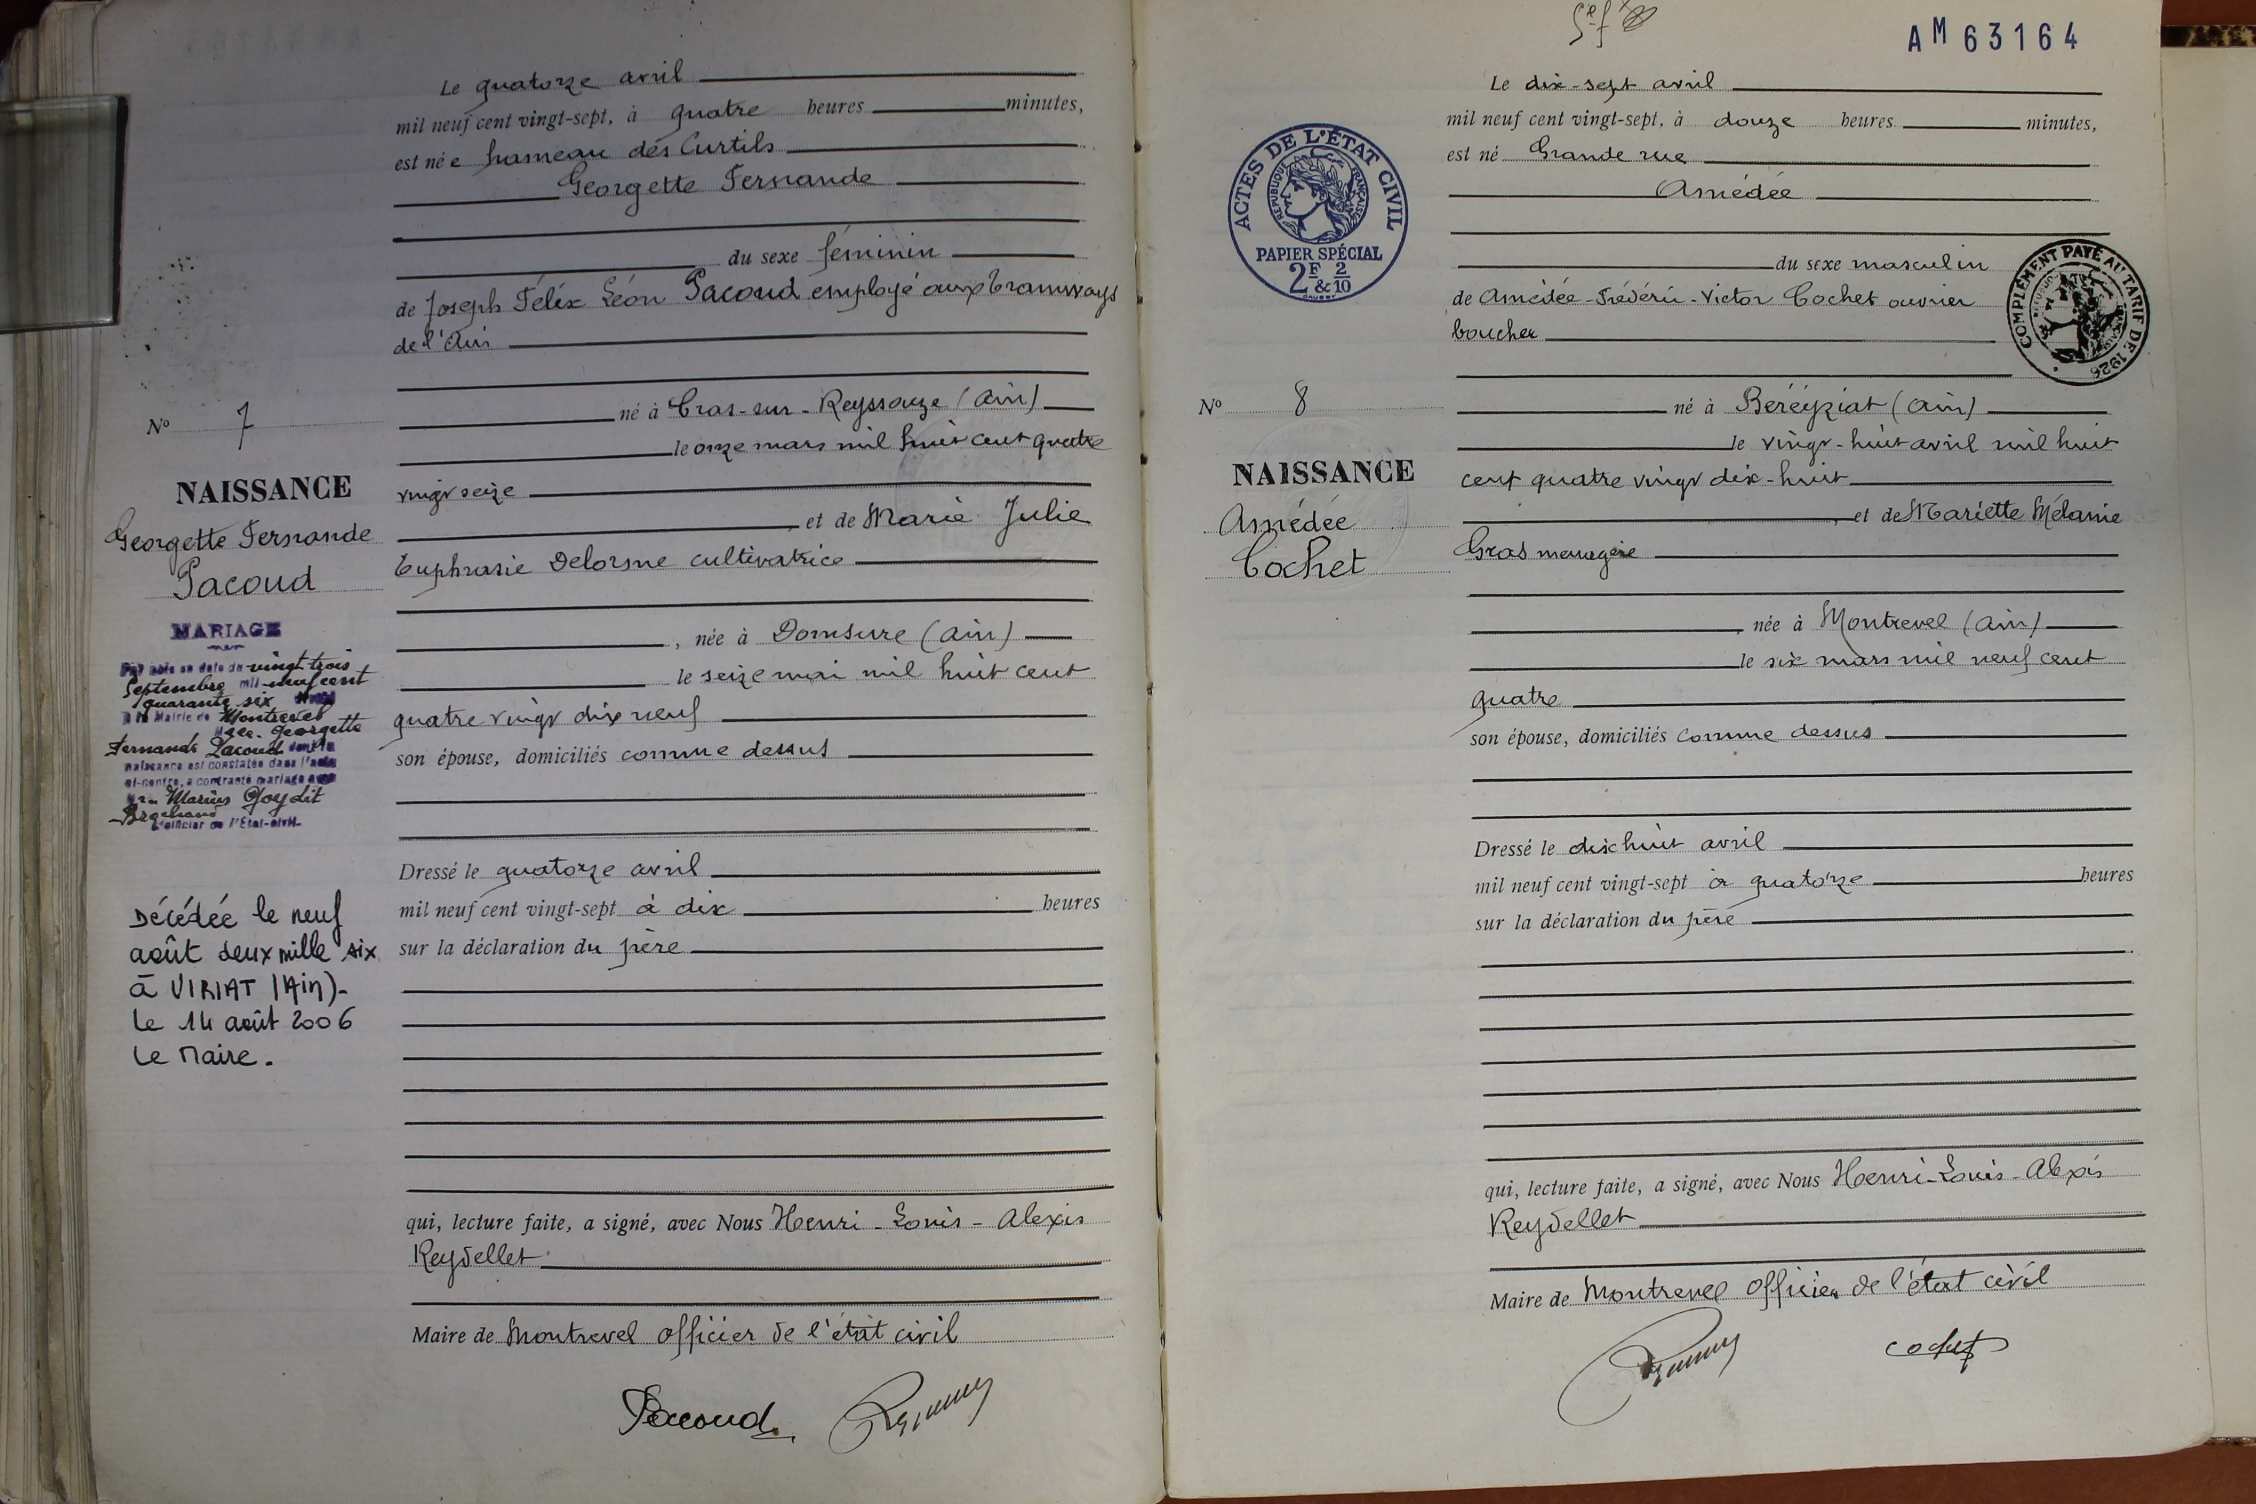 Le quatorze avril
mil neuf cent vingt-sept, à quatre heures minutes,
est née hameau des Curtils
Georgette Fernande
du sexe féminin
de Joseph Félix Léon Pacoud employé aux tramways
de l'Ain
né à Cras-sur-Reyssouze (Ain)
le onze mars mil huit cent quatre
vingt seize
et de Marie Julie
Euphrasie Delorme cultivatrice
, née à Domsure (Ain)
le seize mai mil huit cent
quatre vingt dix neuf
son épouse, domiciliés comme dessus
Dressé le quatorze avril
mil neuf cent vingt-sept à dix heures
sur la déclaration du père
qui, lecture faite, a signé, avec Nous Henri-Louis-Alexis
Reydellet
Maire de Montrevel officier de l'état civil
Pacoud
No 7
NAISSANCE
Georgette Fernande
Pacoud
MARIAGE
Par acte en date du vingt trois
Septembre mil neuf cent
quarante six
à la Mairie de Montrevel
Georgette
Fernande Pacoud dont la
naissance est constatée dans l'acte
ci-contre, a contracté mariage avec
Marius Goy dit
L'officier de l'Etat-civil.
Décédée le neuf
août deux mille six
à VIRIAT (Ain)-
Le 14 août 2006
Le Maire.
AM63164
Le dix-sept avril
mil neuf cent vingt-sept, à douze heures minutes,
est né Grande rue
Amédée
du sexe masculin
de Amédée-Frédéric-Victor Cochet ouvrier
boucher
né à Béréyziat (Ain)
le vingt-huit avril mil huit
cent quatre vingt dix-huit
, et de Mariette Mélanie
Gras ménagère
, née à Montrevel (Ain)
le six mars mil neuf cent
quatre
son épouse, domiciliés comme dessus
Dressé le dix huit avril
mil neuf cent vingt-sept à quatorze heures
sur la déclaration du père
qui, lecture faite, a signé, avec Nous Henri-Louis-Alexis
Reydellet
Maire de Montrevel officier de l'état civil
Cochet
ACTES DE L'ÉTAT CIVIL
RÉPUBLIQUE FRANÇAISE
PAPIER SPÉCIAL
2F & 2/10
COMPLÉMENT PAYÉ AU TARIF DE 1926
No 8
NAISSANCE
Amédée
Cochet